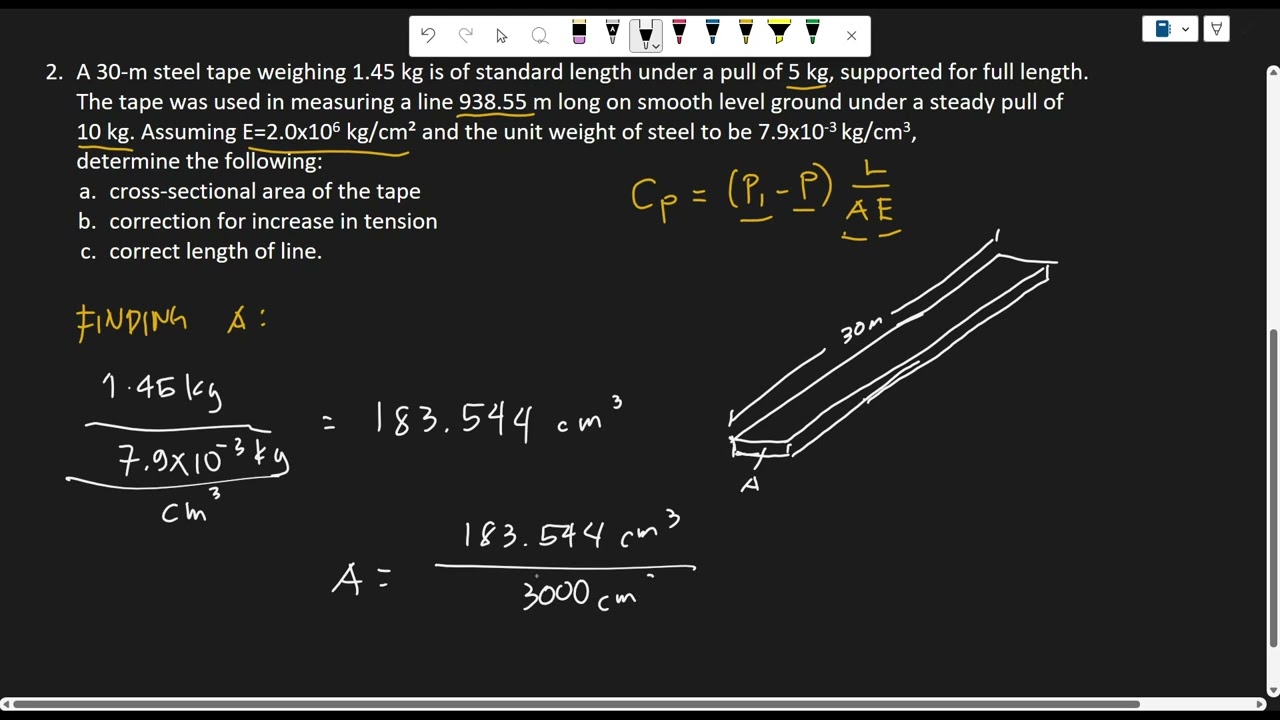 2. A 30-m steel tape weighing 1.45 kg is of standard length under a pull of 5 kg, supported for full length.
The tape was used in measuring a line 938.55 m long on smooth level ground under a steady pull of
10 kg. Assuming E=2.0x10⁶ kg/cm² and the unit weight of steel to be 7.9x10⁻³ kg/cm³,
determine the following:
a. cross-sectional area of the tape
b. correction for increase in tension
c. correct length of line.
Cp = (P₁ - P) L / AE
FINDING A:
30m
1.45 kg
7.9x10⁻³ kg
cm³
= 183.544 cm³
A
A = 183.544 cm³
3000 cm